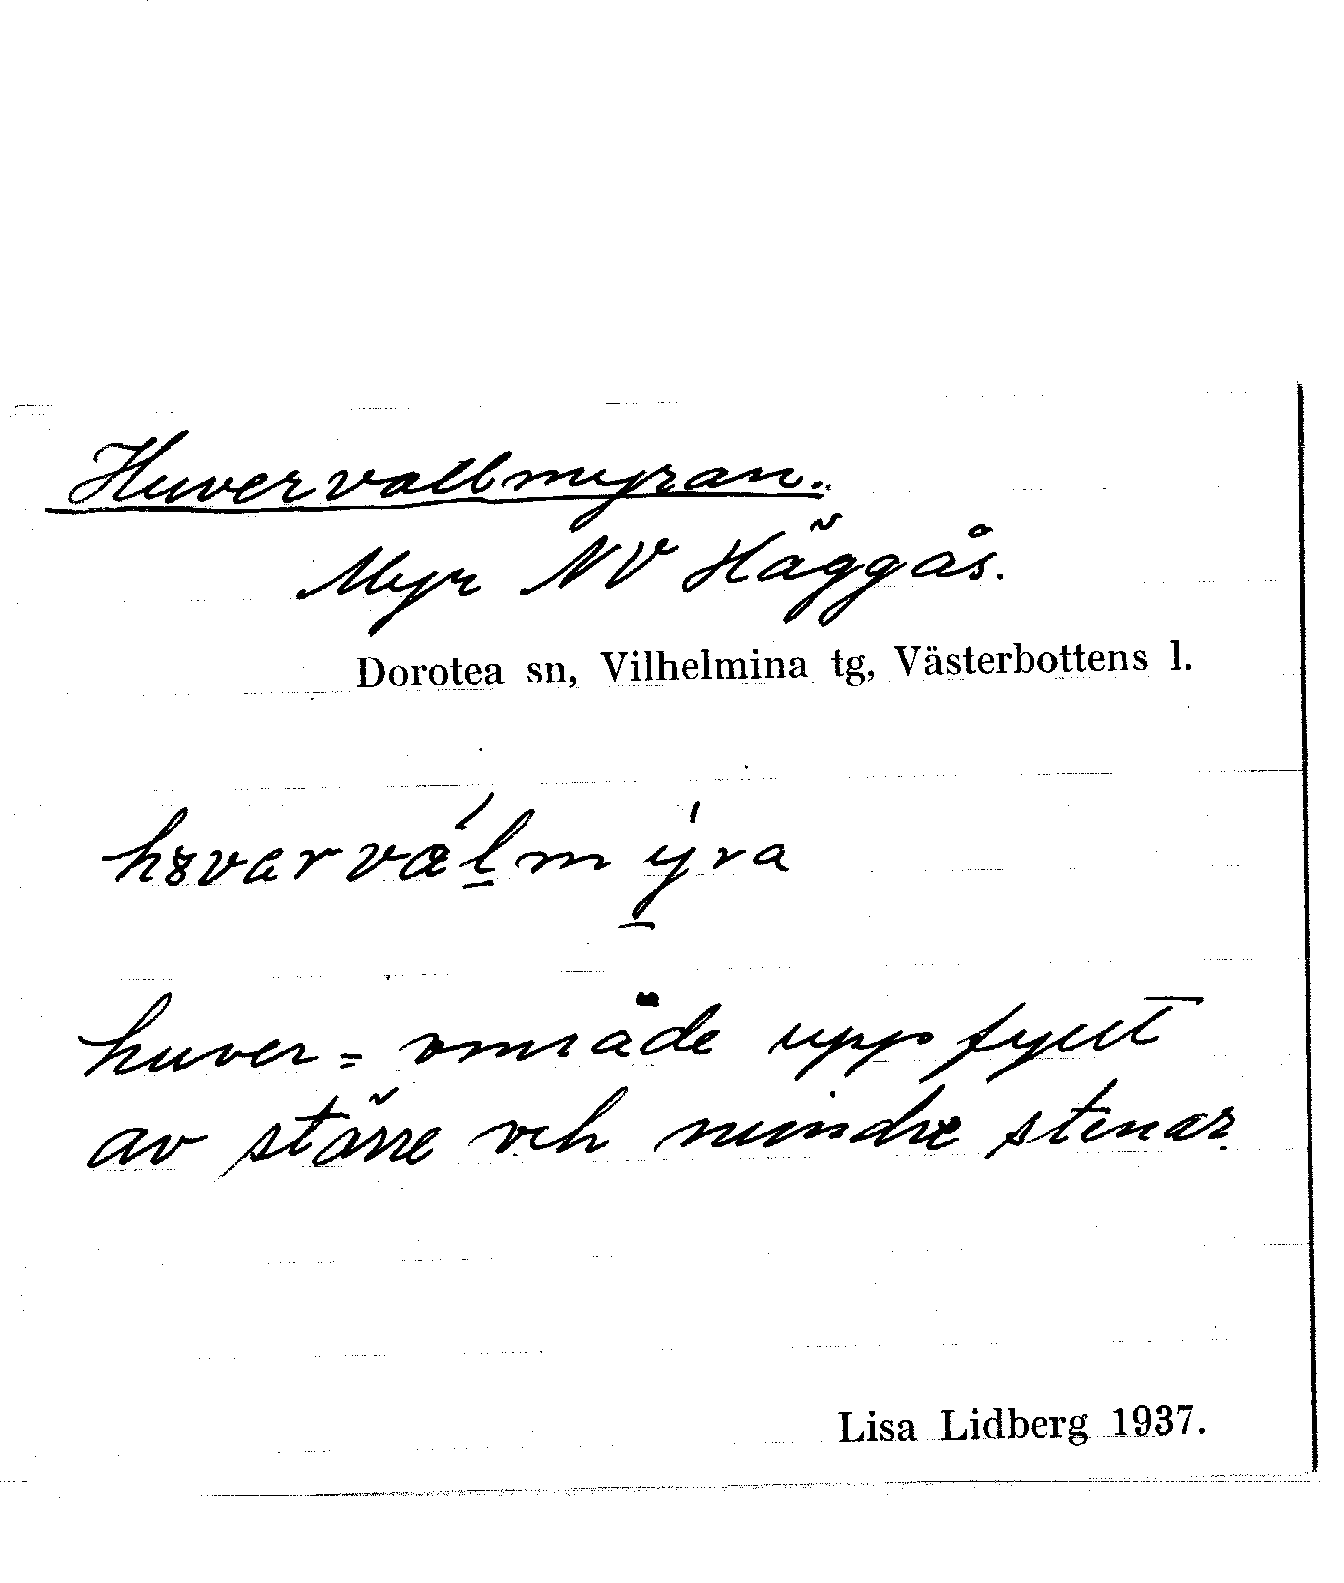 Huvervallmyran.
Myr NV Häggås.
Dorotea sn, Vilhelmina tg, Västerbottens l.
huver = område uppfyllt
av större och mindre stenar.
Lisa Lidberg 1937.